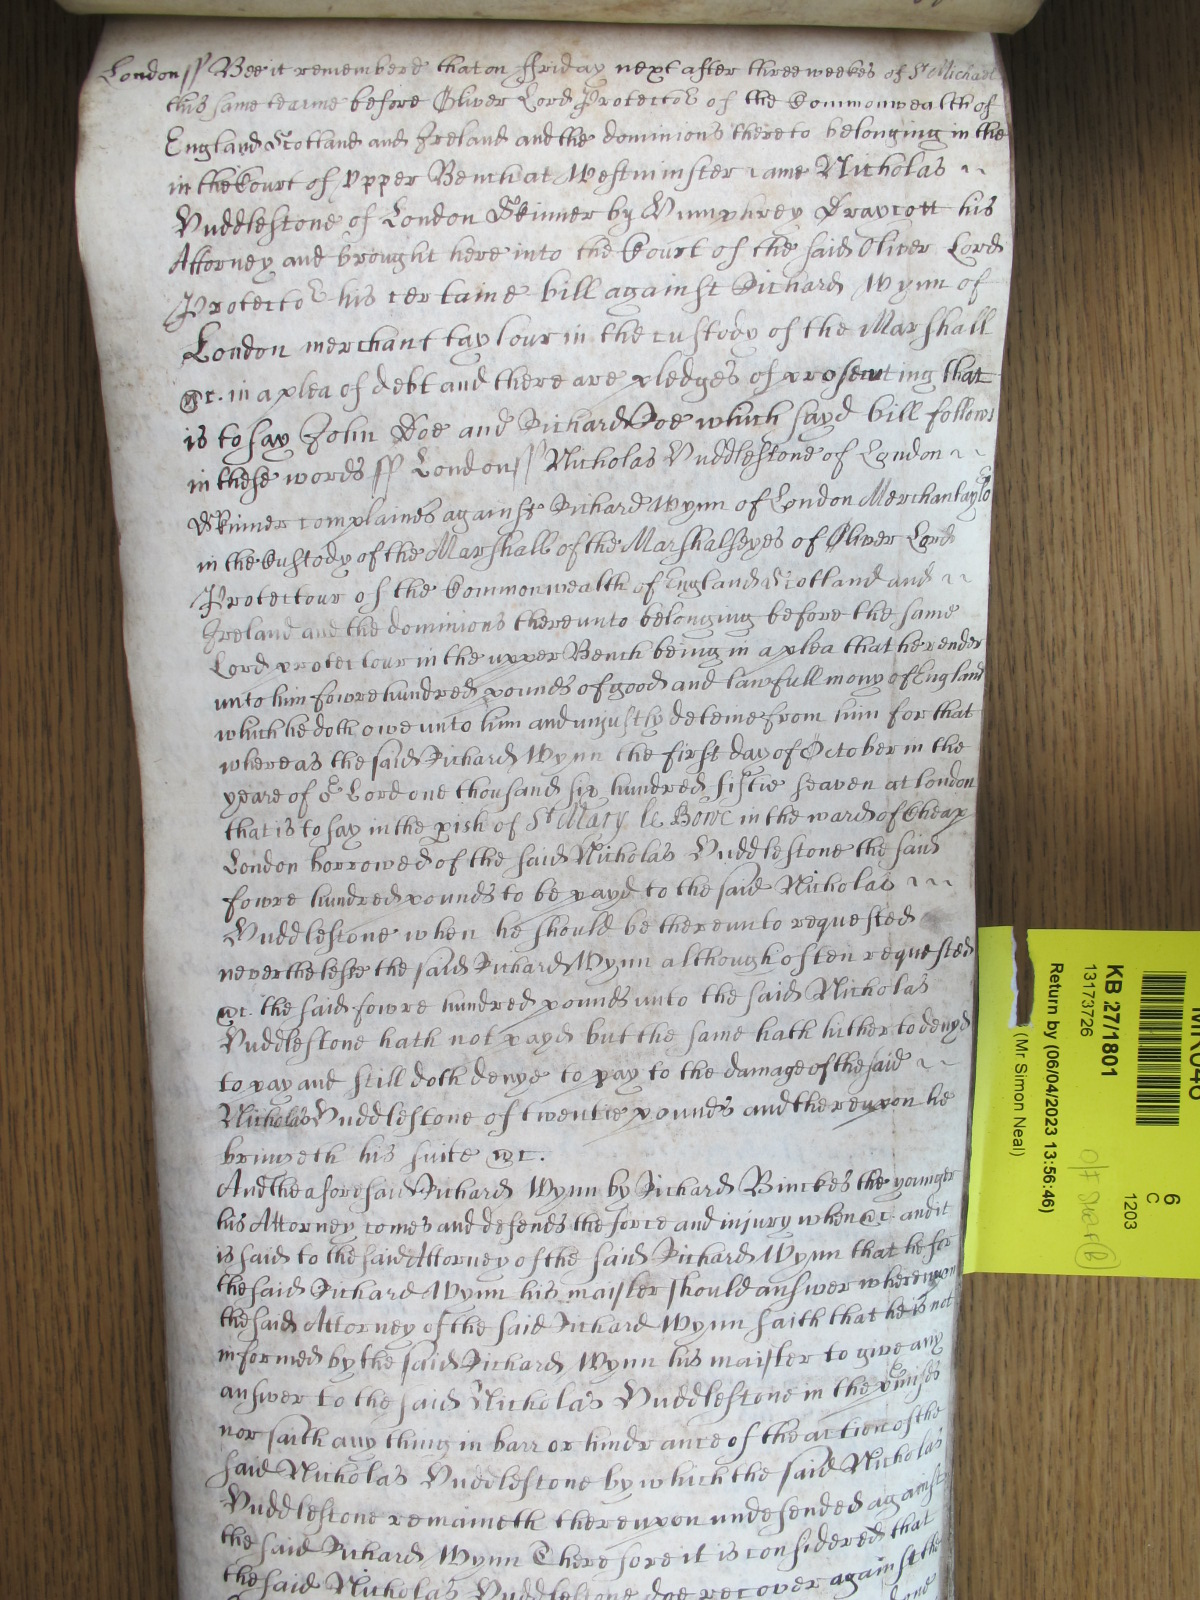 London ss Bee it remembred that on Friday next after three weekes of St Michaell
this same tearme before Oliver Lord Protector of the Commonwealth of
England Scotland and Ireland and the dominions thereto belonging in the
in the Court of Upper Bench at Westminster came Nicholas ~ ~
Huddlestone of London Skinner by Humphrey Draycott his
Attorney and brought here into the Court of the said Oliver Lord
Protector his certaine bill against Richard Wynn of
London merchant taylour in the custody of the Marshall
&c. in a plea of debt and there are pledges of prosecuting that
is to say John Doe and Richard Roe which sayd bill follows
in these words ss London ss Nicholas Huddlestone of London ~ ~
Skinner complaines against Richard Wynn of London Merchantaylor
in the Custody of the Marshall of the Marshalseyes of Oliver Lord
Protectour of the Commonwealth of England Scotland and ~ ~
Ireland and the dominions thereunto belonging before the same
Lord protectour in the upper Bench being in a plea that he render
unto him fowre hundred pounds of good and lawfull mony of England
which he doth owe unto him and unjustly deteine from him for that
whereas the said Richard Wynn the first day of October in the
yeare of or Lord one thousand six hundred fiftie seaven at London
that is to say in the pish of St Mary le Bowe in the ward of Cheap
London borrowed of the said Nicholas Huddlestone the said
fowre hundred pounds to be payd to the said Nicholas ~ ~ ~
Huddlestone when he should be thereunto requested
neverthelesse the said Richard Wynn although often requested
&c. the said fowre hundred pounds unto the said Nicholas
Huddlestone hath not payd but the same hath hitherto denyd
to pay and still doth denye to pay to the damage of the said ~ ~
Nicholas Huddlestone of twentie pounds and thereupon he
bringeth his suite &c.
And the aforesaid Richard Wynn by Richard Binckes the younger
his Attorney comes and defends the force and injury when &c. and it
is said to the said Attorney of the said Richard Wynn that he for
the said Richard Wynn his maister should answer whereupon
the said Attorney of the said Richard Wynn saith that he is not
informed by the said Richard Wynn his maister to give any
answer to the said Nicholas Huddlestone in the pmises
nor saith any thing in barr or hindrance of the action of the
said Nicholas Huddlestone by which the said Nicholas
Huddlestone remaineth thereupon undefended against
the said Richard Wynn Therefore it is considered that
the said Nicholas Huddlestone doe recover against the
KB 27/1801
13173726
Return by (06/04/2023 13:56:46)
(Mr Simon Neal)
6
C
1203